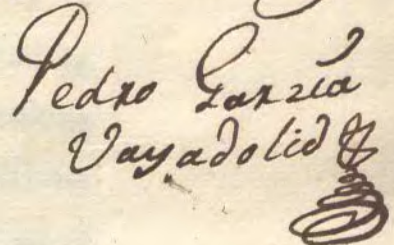 Pedro Garzía
Vayadolid